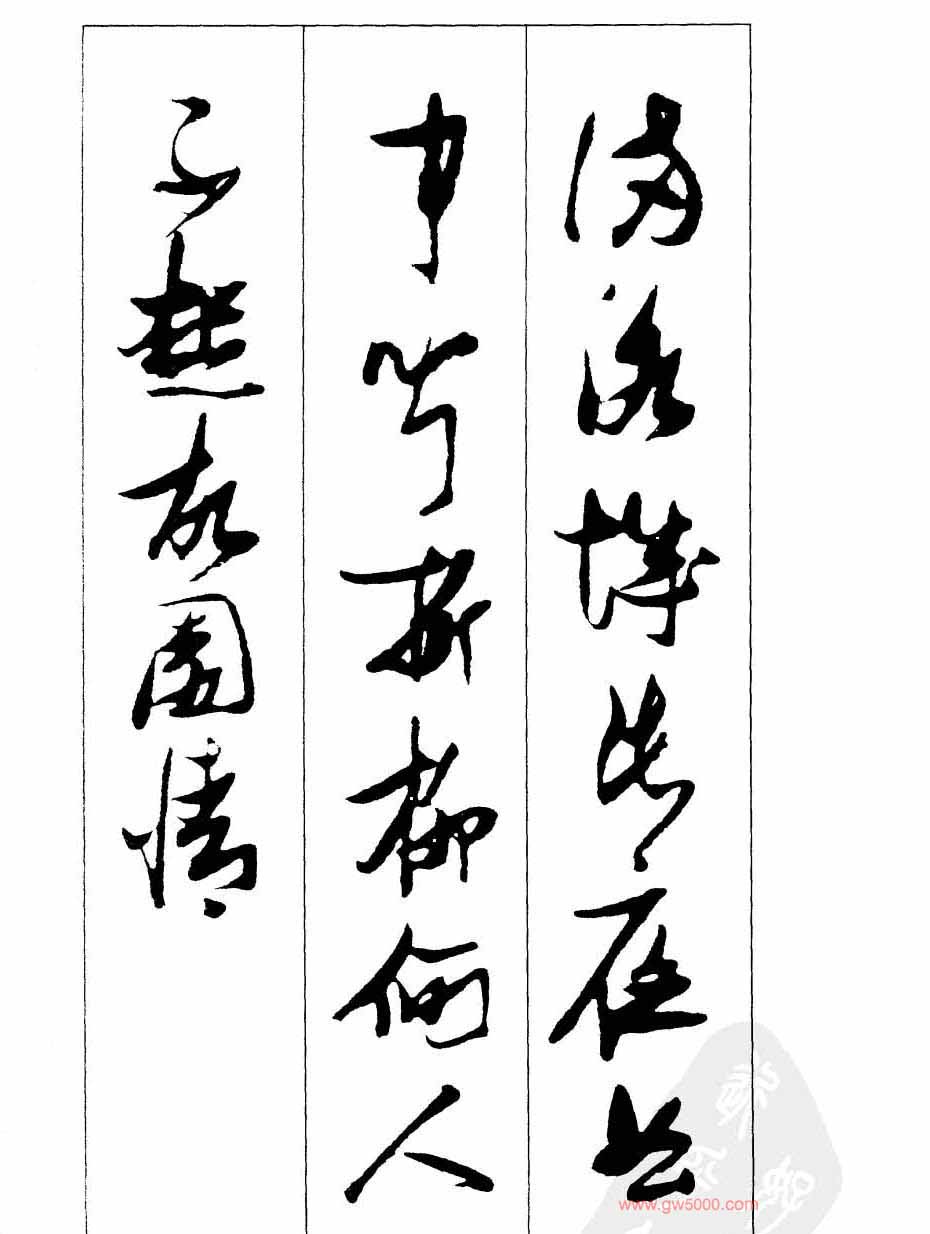 滿洛城此夜曲
中聞折柳何人
不起故園情
www.gw5000.com